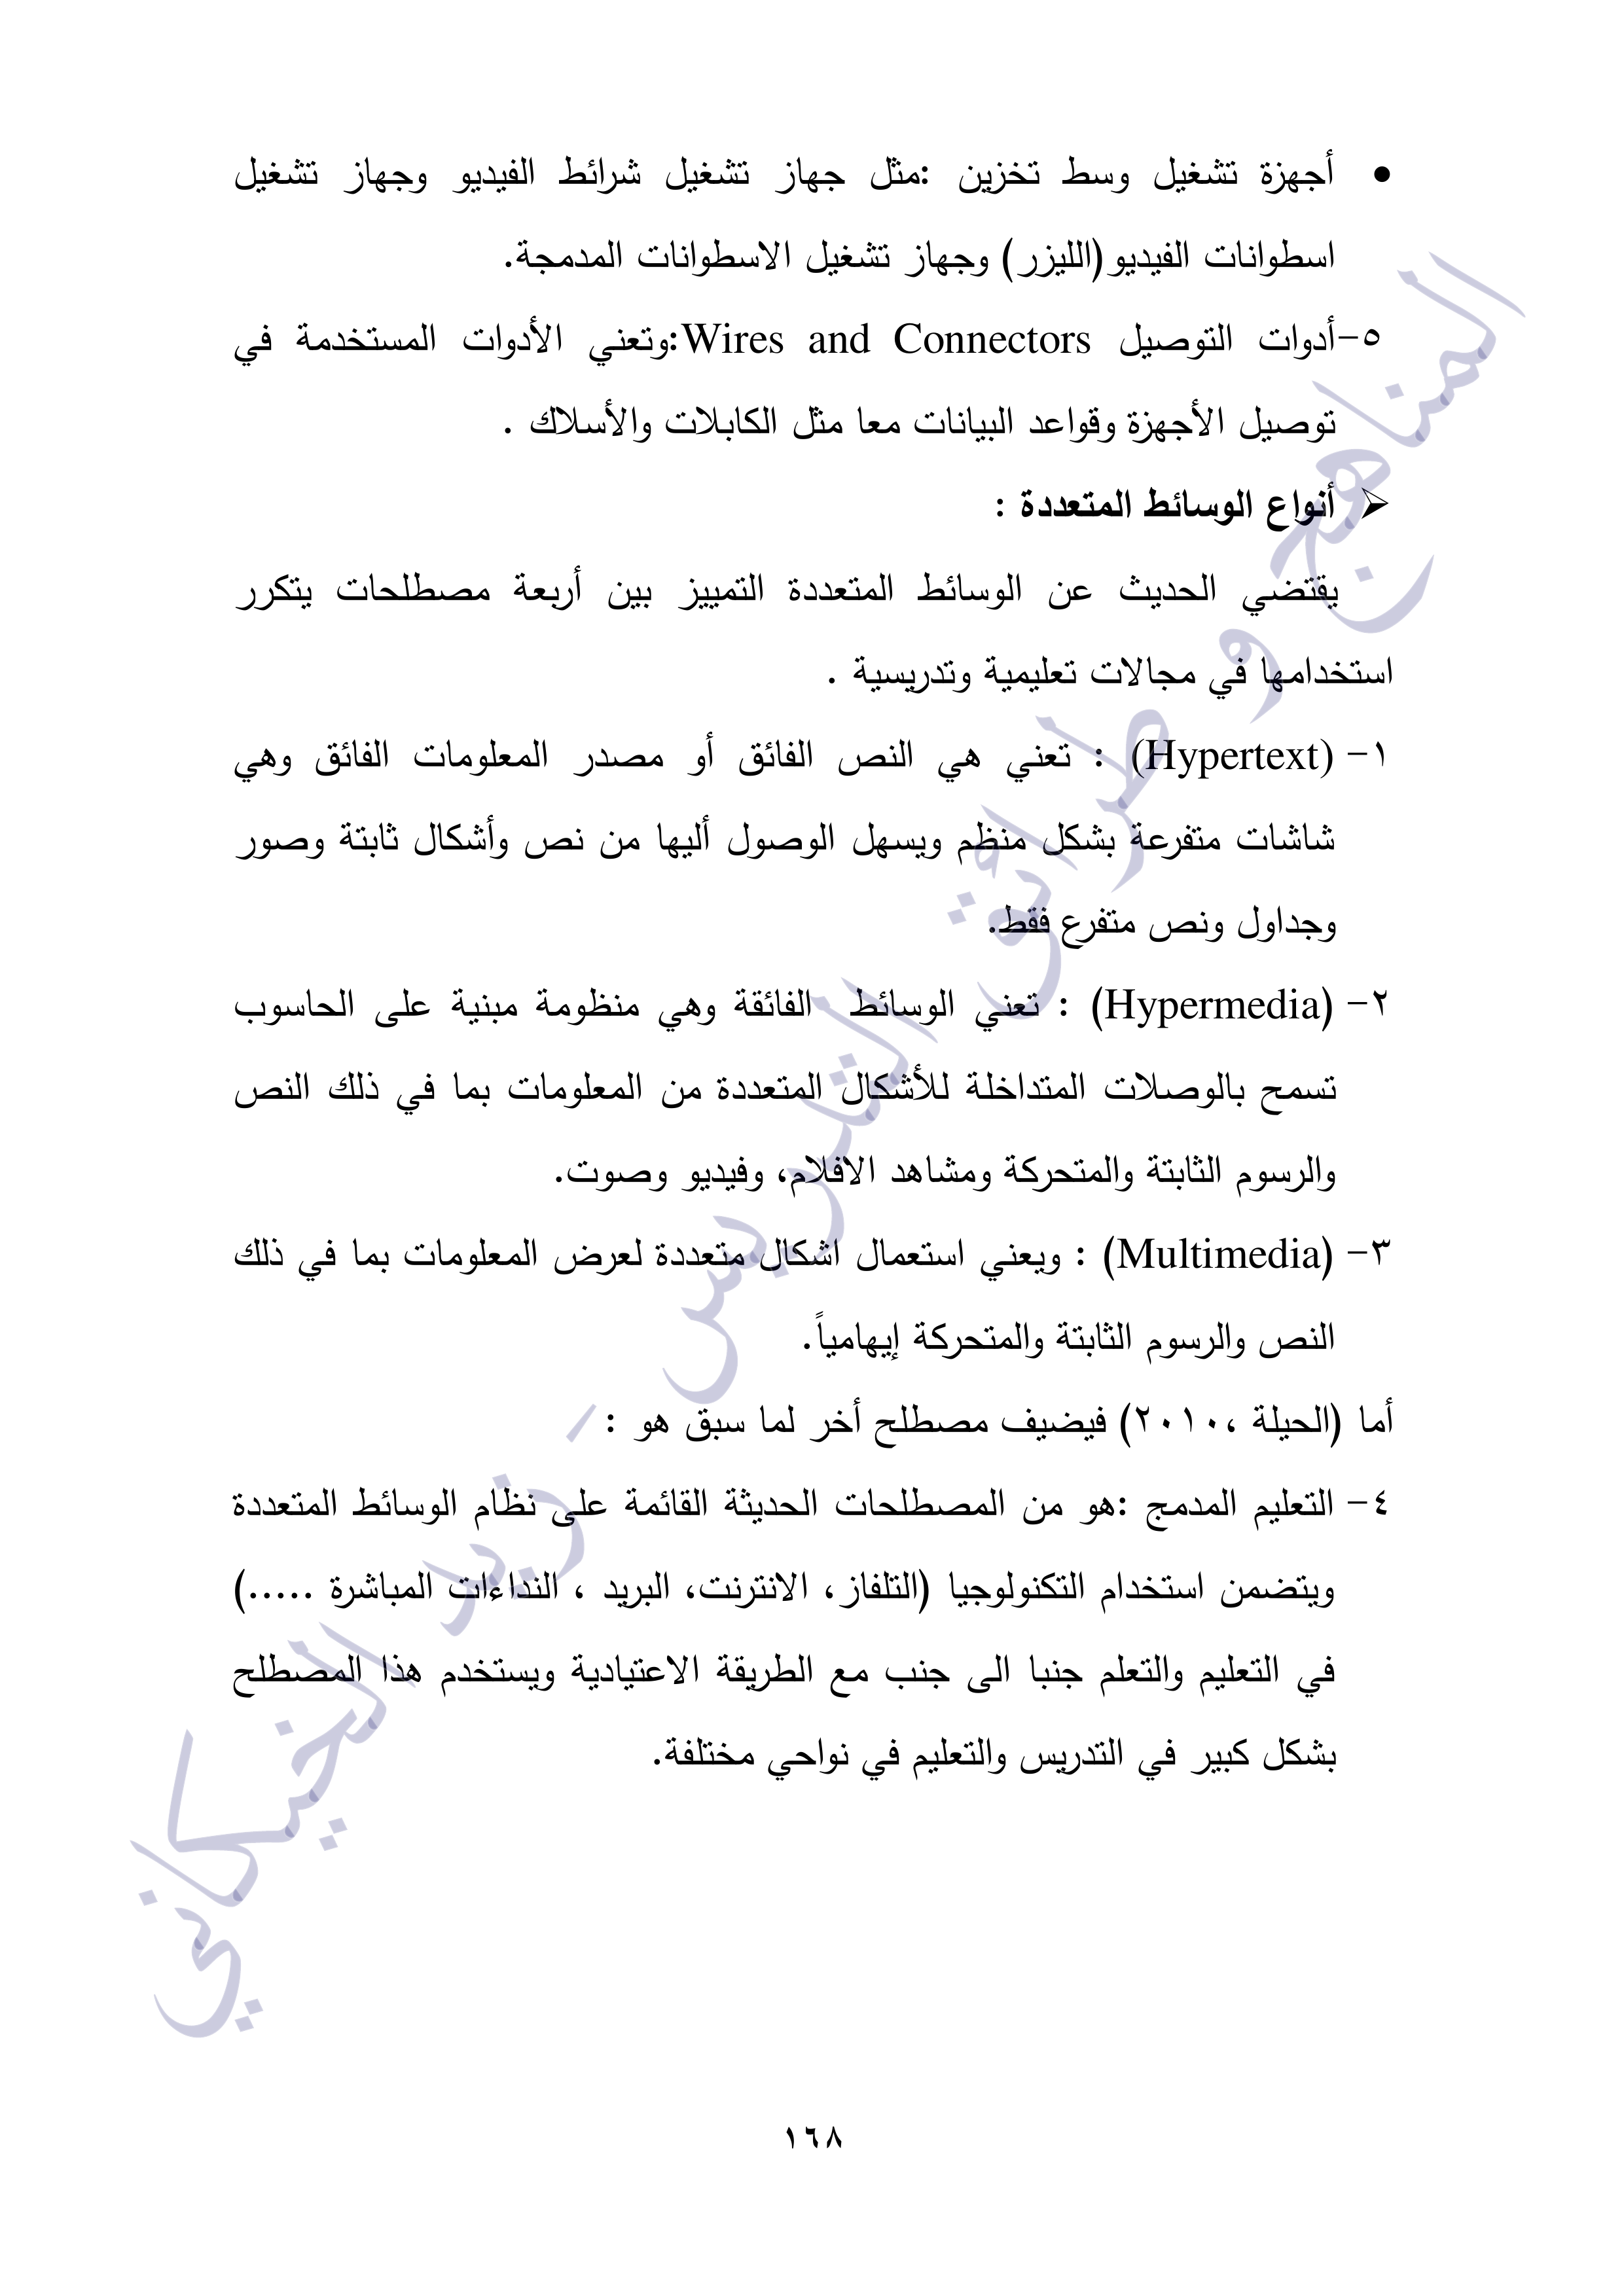 • أجهزة تشغيل وسط تخزين :مثل جهاز تشغيل شرائط الفيديو وجهاز تشغيل
اسطوانات الفيديو(الليزر) وجهاز تشغيل الاسطوانات المدمجة.
٥-أدوات التوصيل Wires and Connectors:وتعني الأدوات المستخدمة في
توصيل الأجهزة وقواعد البيانات معا مثل الكابلات والأسلاك .
➢ أنواع الوسائط المتعددة :
يقتضي الحديث عن الوسائط المتعددة التمييز بين أربعة مصطلحات يتكرر
استخدامها في مجالات تعليمية وتدريسية .
١- (Hypertext) : تعني هي النص الفائق أو مصدر المعلومات الفائق وهي
شاشات متفرعة بشكل منظم ويسهل الوصول أليها من نص وأشكال ثابتة وصور
وجداول ونص متفرع فقط.
٢- (Hypermedia) : تعني الوسائط الفائقة وهي منظومة مبنية على الحاسوب
تسمح بالوصلات المتداخلة للأشكال المتعددة من المعلومات بما في ذلك النص
والرسوم الثابتة والمتحركة ومشاهد الافلام، وفيديو وصوت.
٣- (Multimedia) : ويعني استعمال اشكال متعددة لعرض المعلومات بما في ذلك
النص والرسوم الثابتة والمتحركة إيهامياً.
أما (الحيلة ،٢٠١٠) فيضيف مصطلح أخر لما سبق هو :
٤- التعليم المدمج :هو من المصطلحات الحديثة القائمة على نظام الوسائط المتعددة
ويتضمن استخدام التكنولوجيا (التلفاز، الانترنت، البريد ، النداءات المباشرة .....)
في التعليم والتعلم جنبا الى جنب مع الطريقة الاعتيادية ويستخدم هذا المصطلح
بشكل كبير في التدريس والتعليم في نواحي مختلفة.
المناهج و طرائق التدريس - زيد الخيكاني
١٦٨